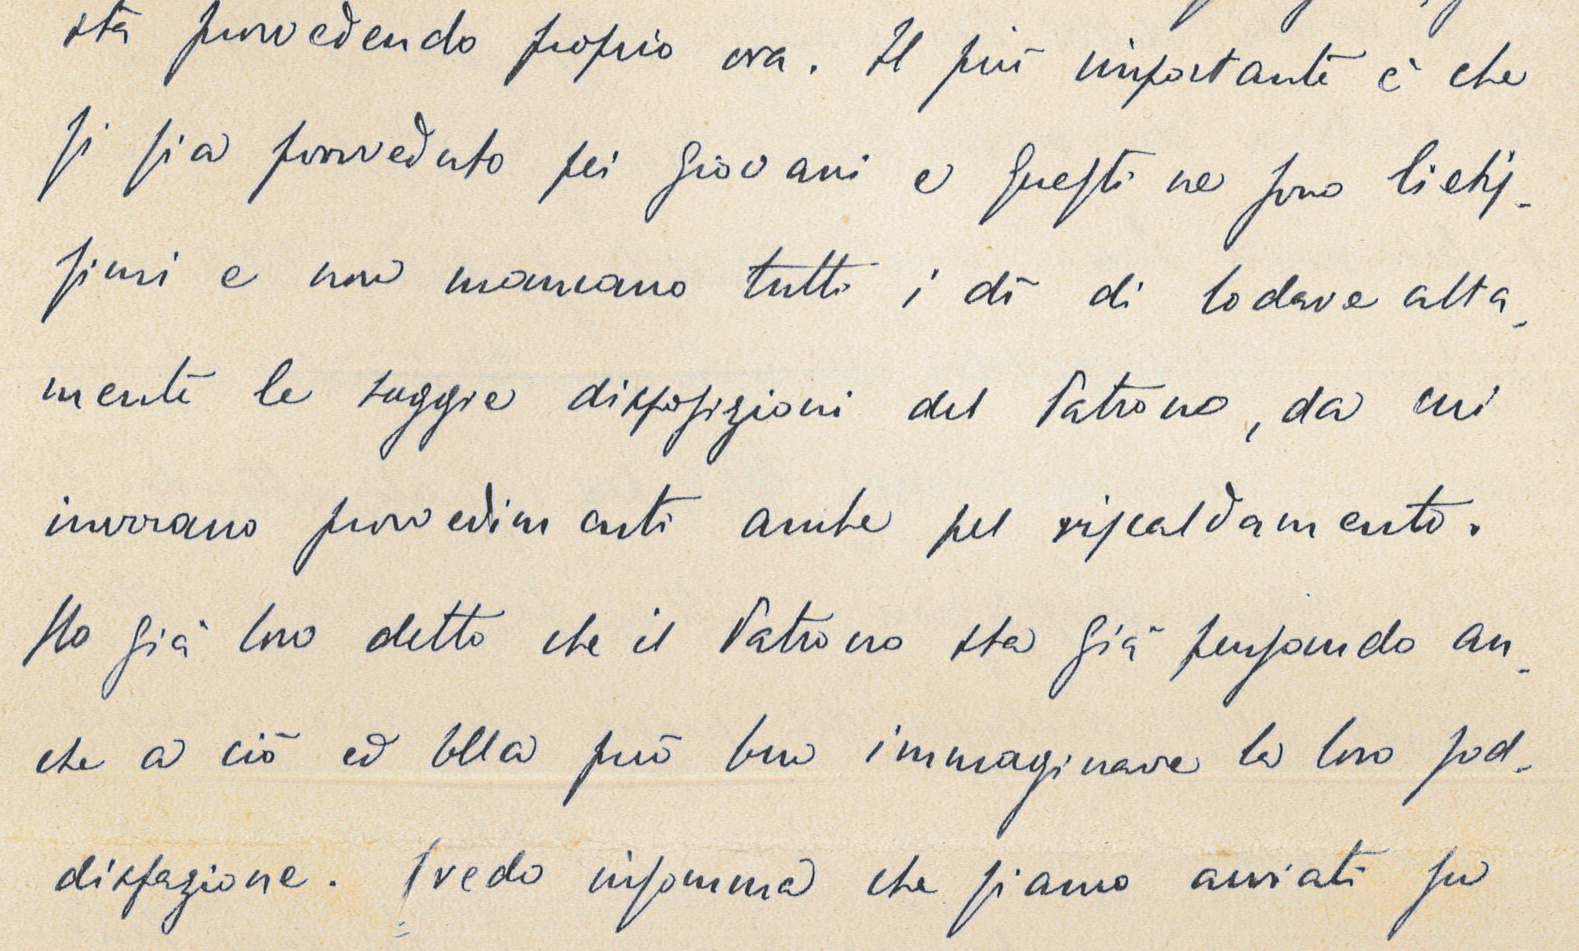 sta provvedendo proprio ora. Il più importante è che
si sia provveduto pei giovani e questi ne sono lietis-
simi e non mancano tutti i dì di lodare alta-
mente le saggie disposizioni del Patrono, da cui
invocano provvedimenti anche pel riscaldamento.
Ho già loro detto che il Patrono sta già pensando an-
che a ciò ed Ella può ben immaginare la loro sod-
disfazione. Credo insomma che siamo avviati su